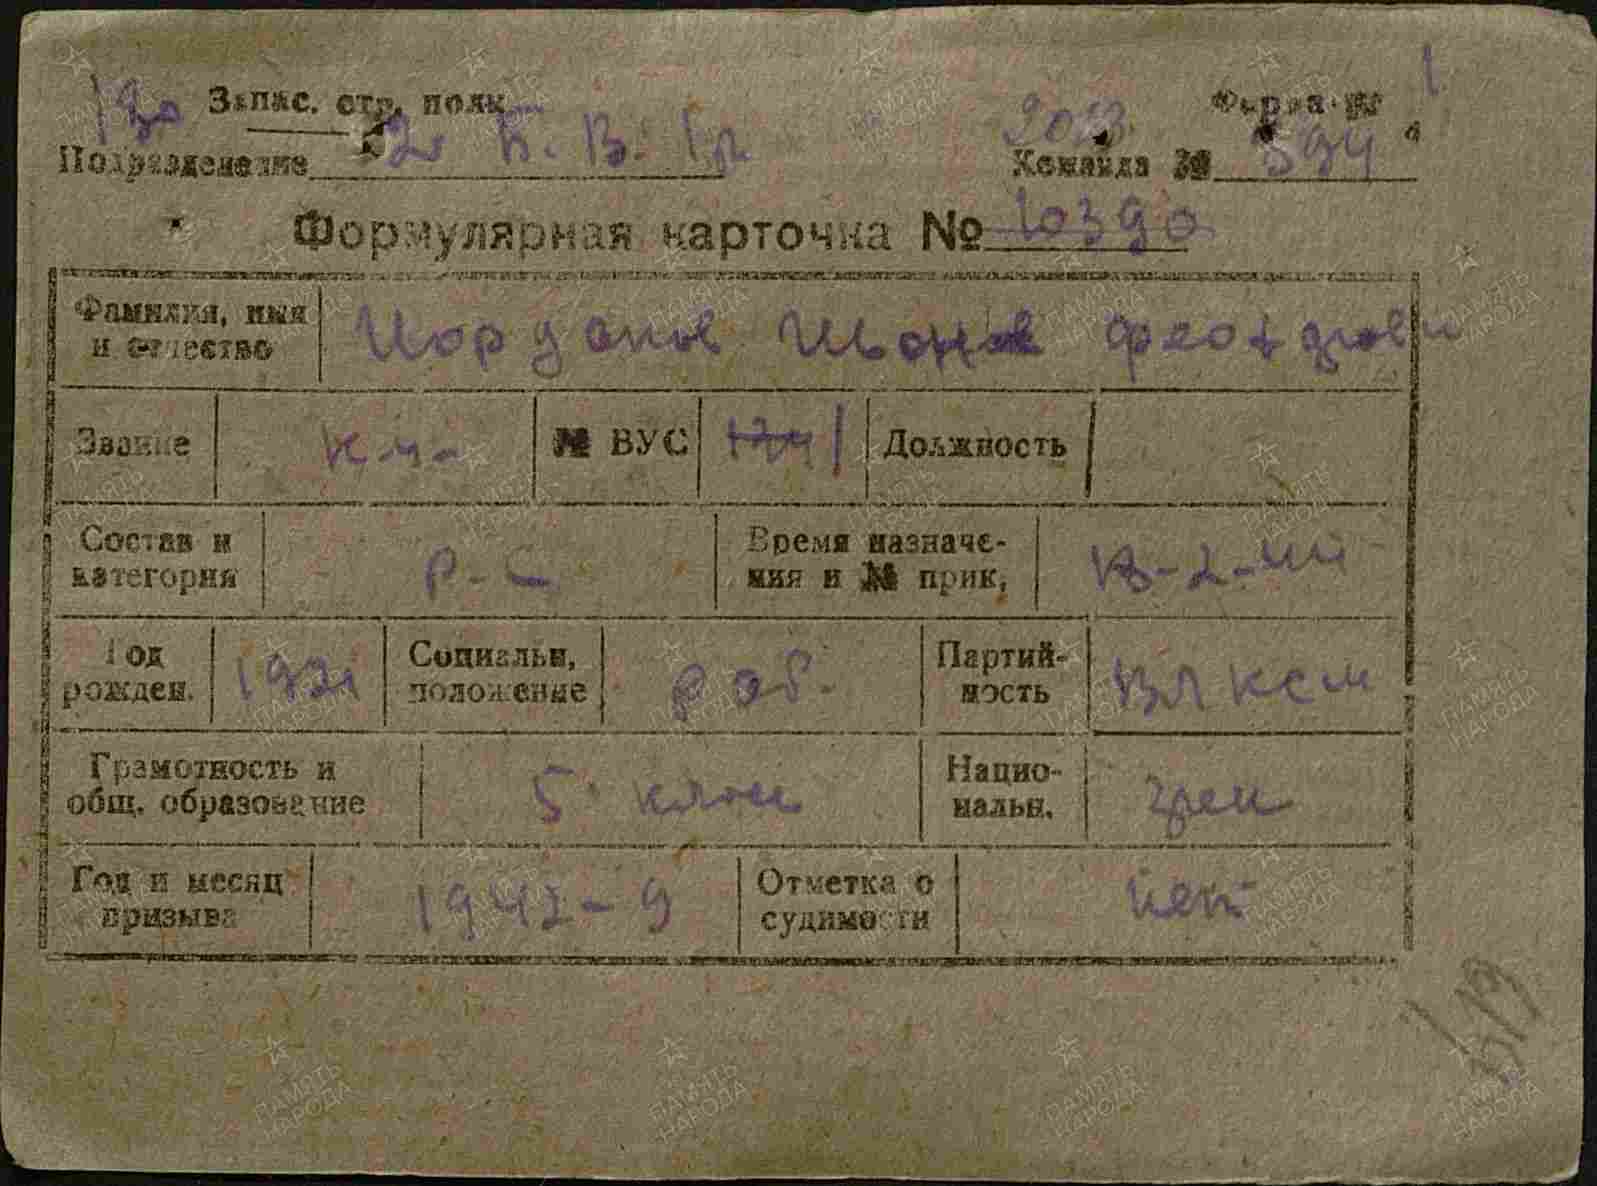 190 Запас. стр. полк
Форма №
1
Подразделение 2о Б. В. Гр.
2023
Команда № 594
Формулярная карточка № 10390
Фамилия, имя и отчество Иорданов Иван
Звание К-ц- № ВУС 1 Должность
Состав и категория Р-С Время назначения и № прик,
Год рожден. 1921 Социальн, положение раб. Партийность ВЛКСМ
Грамотность и общ. образование 5 класс Национальн. грек
Год и месяц призыва 1942-9 Отметка о судимости нет
ПАМЯТЬ НАРОДА